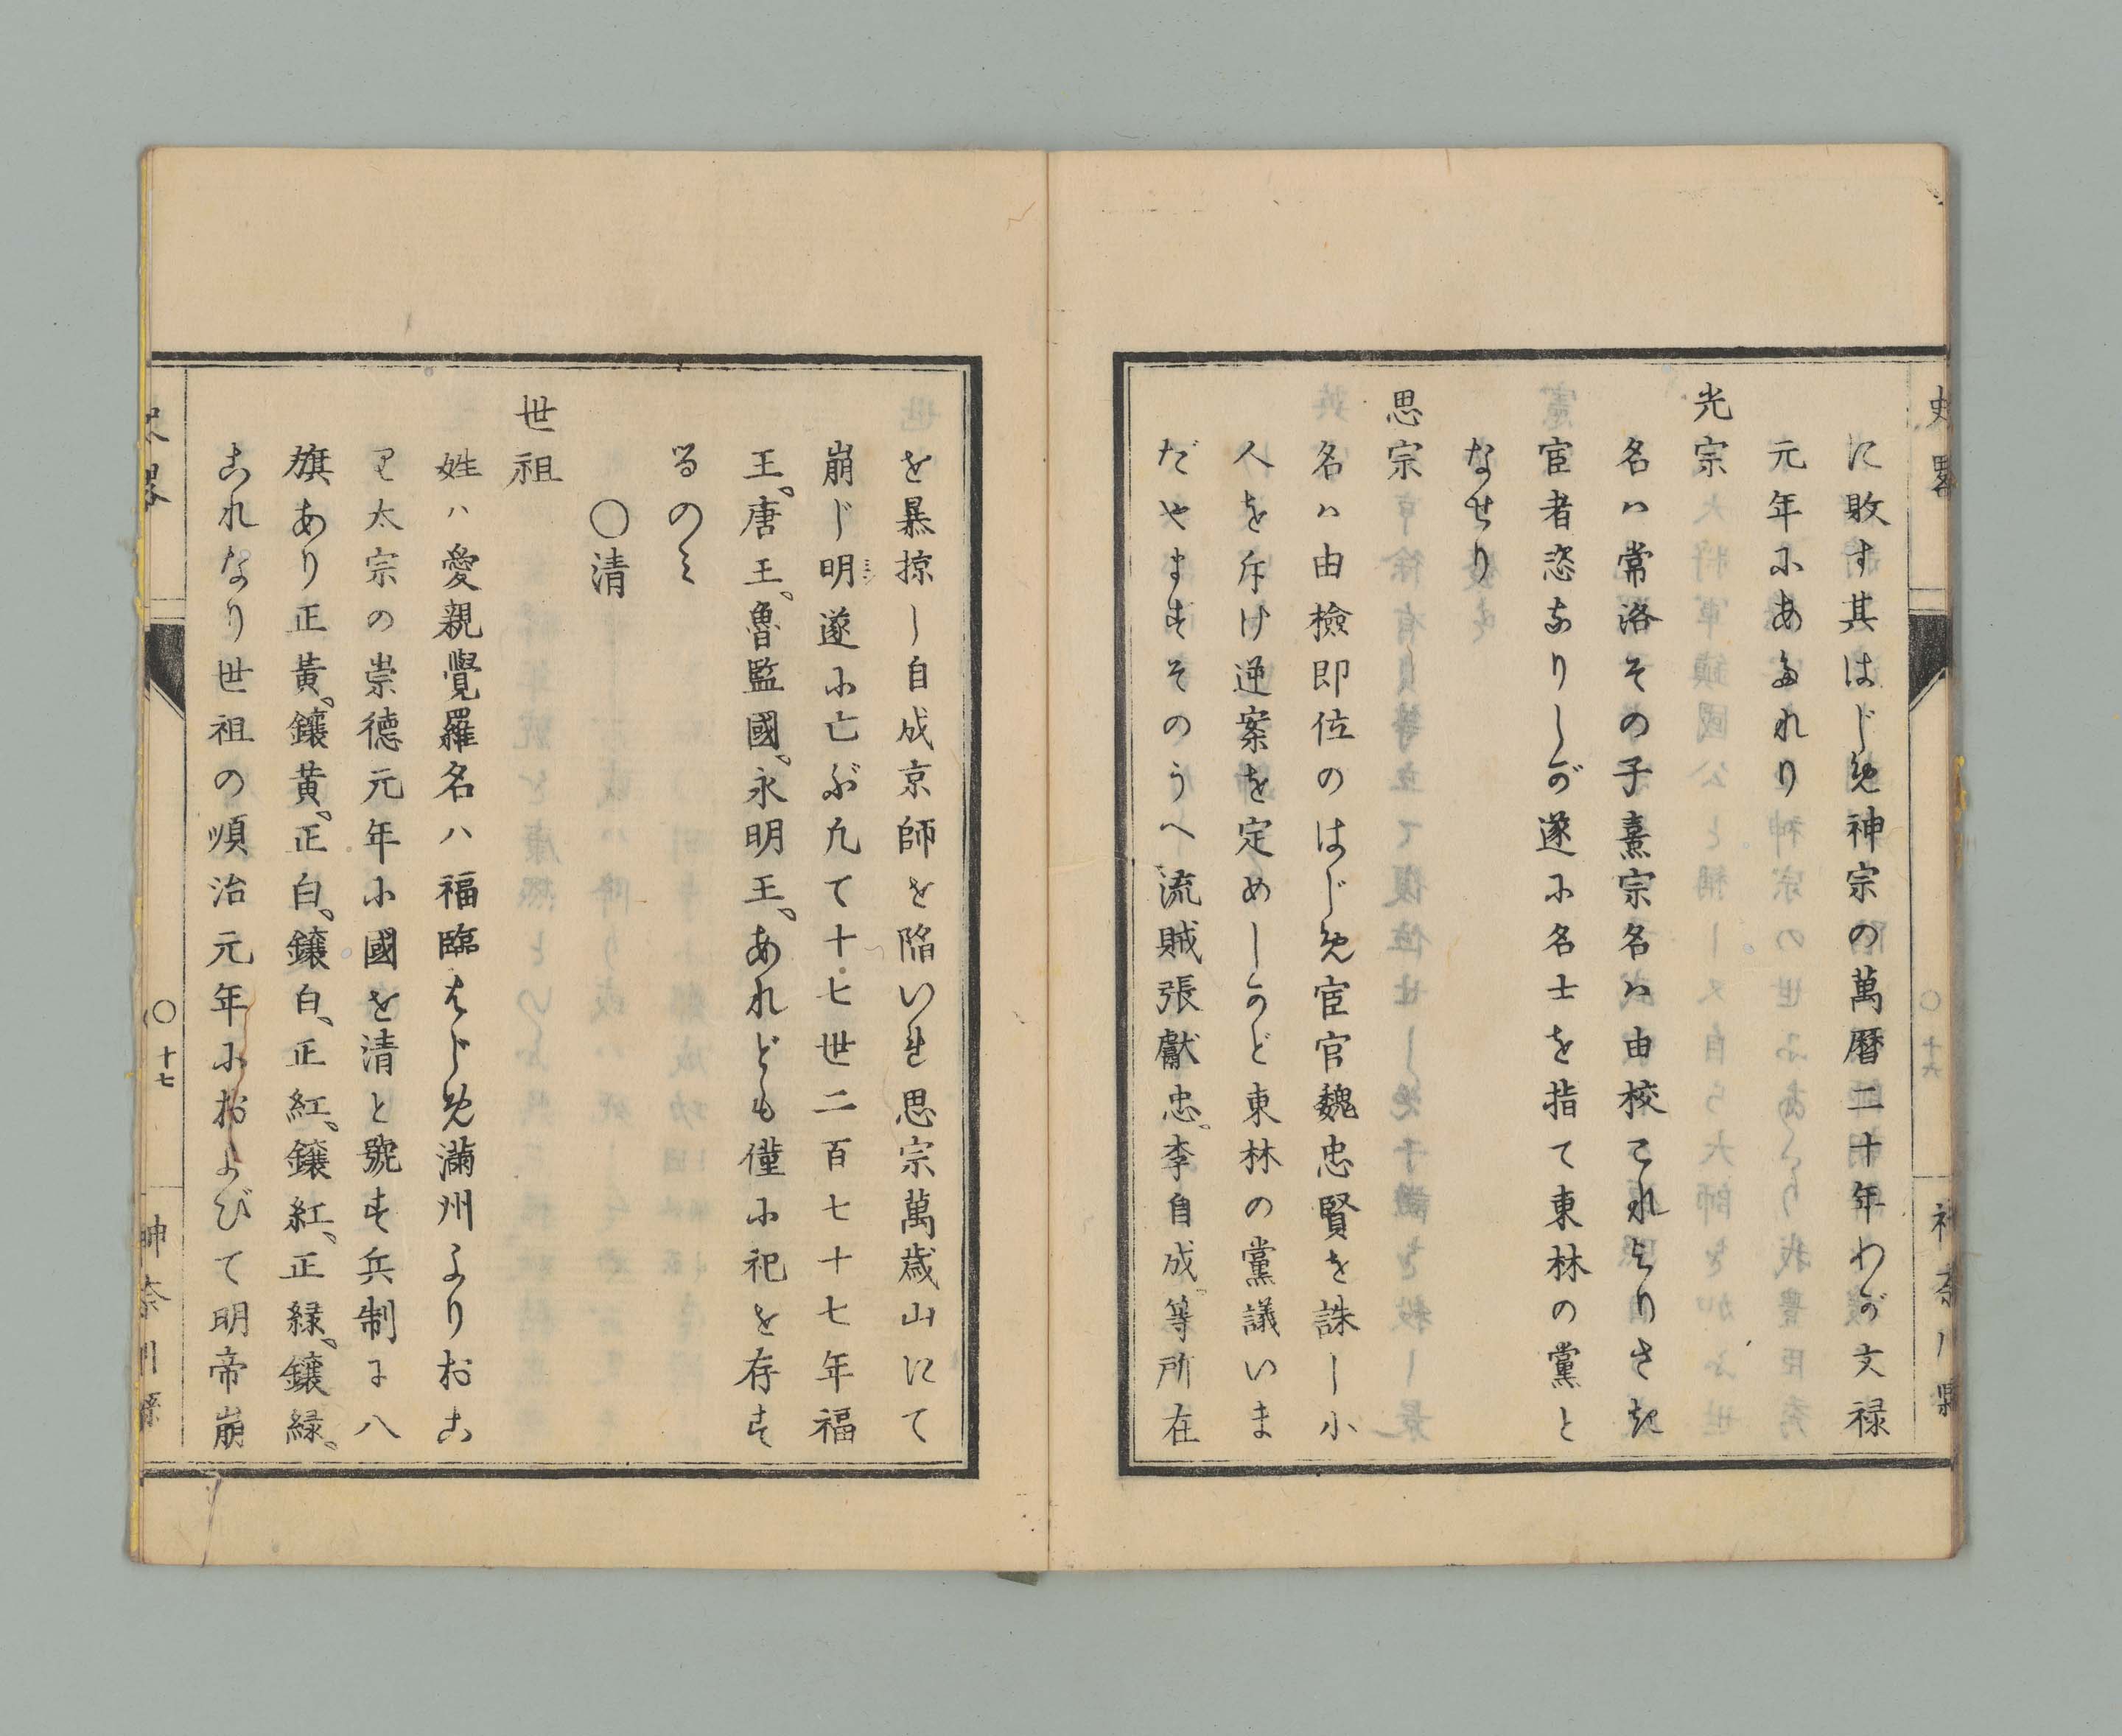 史畧
神奈川縣
に敗す其はじめ神宗の萬曆二十年わが文禄
元年にあたれり
光宗
名ハ常洛その子熹宗名ハ由校これよりさき
宦者恣なりしが遂に名士を指て東林の黨と
なせり
思宗
名ハ由檢即位のはじめ宦官魏忠賢を誅し小
人を斥け逆案を定めしかど東林の黨議いま
だやまずそのうへ流賊張獻忠、李自成、等所在
を暴掠し自成京師を陷いれ思宗萬歳山にて
崩じ明遂に亡ぶ凡て十七世二百七十七年福
王、唐王、魯監國、永明王、あれども僅に祀を存す
るのミ
〇清
世祖
姓ハ愛親覺羅名ハ福臨はじめ滿州よりおこ
り太宗の崇德元年に國を清と號す兵制に八
旗あり正黃、鑲黄、正白、鑲白、正紅、鑲紅、正緑、鑲緑、
これなり世祖の順治元年におよびて明帝崩
史畧
〇十七
神奈川縣